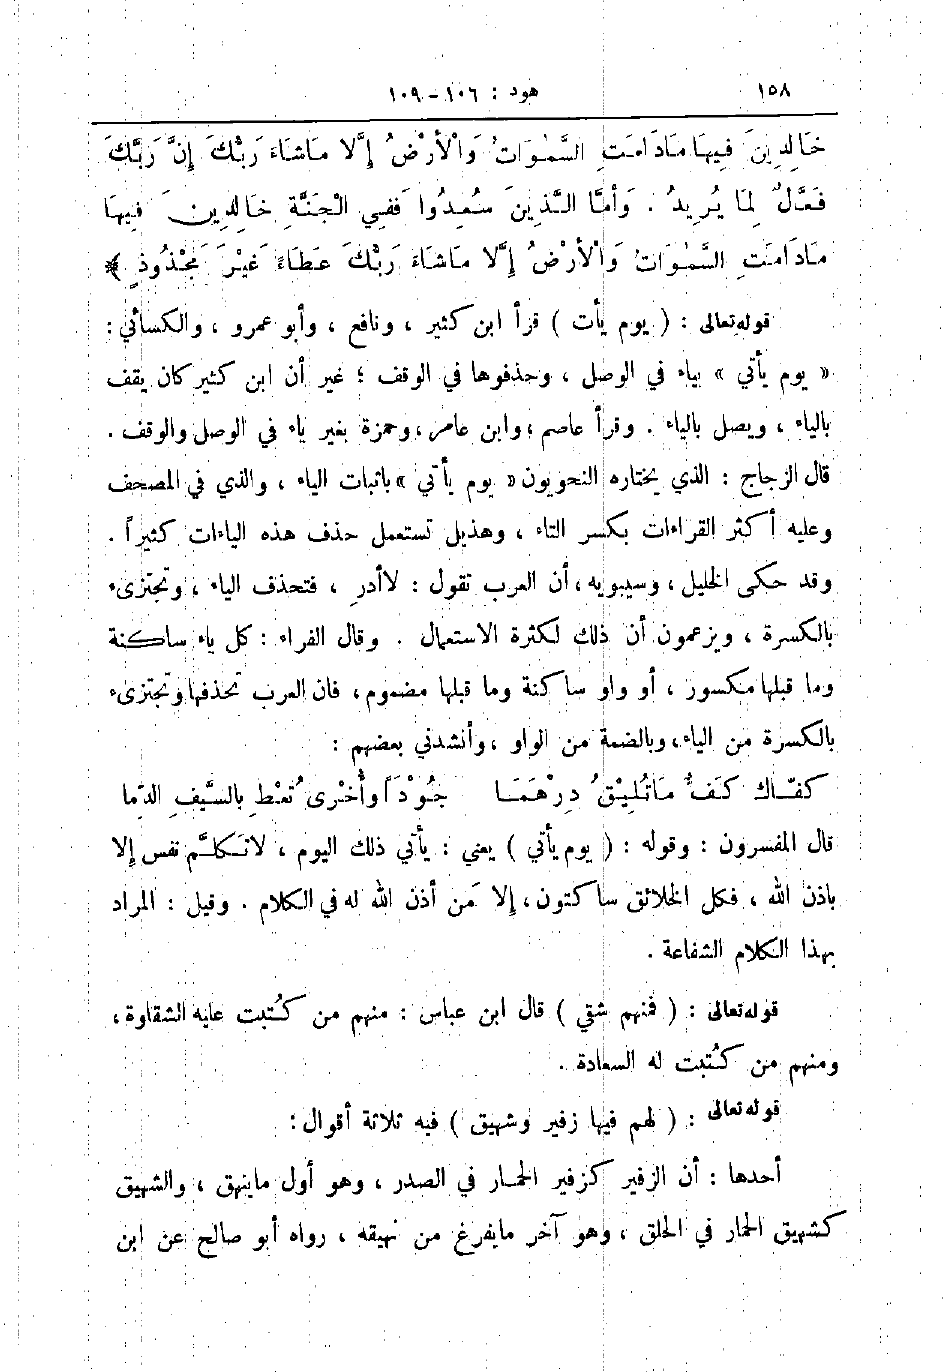 ١٥٨ هود : ١٠٦ – ١٠٩
خَالِدِينَ فِيهَا مَادَامَتِ السَّمٰوَاتُ وَالْأَرْضُ إِلَّا مَاشَاءَ رَبُّكَ إِنَّ رَبَّكَ
فَعَّالٌ لِمَا يُرِيدُ . وَأَمَّا الَّذِينَ سُعِدُوا فَفِي الْجَنَّةِ خَالِدِينَ فِيهَا
مَادَامَتِ السَّمٰوَاتُ وَالْأَرْضُ إِلَّا مَاشَاءَ رَبُّكَ عَطَاءً غَيْرَ مَجْذُوذٍ ﴾
قوله تعالى : ( يوم يأت ) قرأ ابن كثير ، ونافع ، وأبو عمرو ، والكسائي :
« يوم يأتي » بياء في الوصل ، وحذفوها في الوقف ؛ غير أن ابن كثير كان يقف
بالياء ، ويصل بالياء . وقرأ عاصم ، وابن عامر ، وحمزة بغير ياء في الوصل والوقف .
قال الزجاج : الذي يختاره النحويون « يوم يأتي » باثبات الياء ، والذي في المصحف
وعليه أكثر القراءات بكسر التاء ، وهذيل تستعمل حذف هذه الياءات كثيراً .
وقد حكى الخليل ، وسيبويه ، أن العرب تقول : لاأدرِ ، فتحذف الياء ، وتجتزىء
بالكسرة ، ويزعمون أن ذلك لكثرة الاستعمال . وقال الفراء : كل ياء ساكنة
وما قبلها مكسور ، أو واو ساكنة وما قبلها مضموم ، فان العرب تحذفها وتجتزىء
بالكسرة من الياء ، وبالضمة من الواو ، وأنشدني بعضهم :
كفَّاك كَفٌّ مَاتُلِيْقُ دِرْهَمَا جُوْدَاً وأُخْرى تُعْطِ بِالسَّيفِ الدِّما
قال المفسرون : وقوله : ( يوم يأتي ) يعني : يأتي ذلك اليوم ، لاتَكلَّم نفس إلا
باذن الله ، فكل الخلائق ساكتون ، إلا مَن أذن الله له في الكلام . وقيل : المراد
بهذا الكلام الشفاعة .
قوله تعالى : ( فمنهم شقي ) قال ابن عباس : منهم من كُتبت عليه الشقاوة ،
ومنهم من كُتبت له السعادة .
قوله تعالى : ( لهم فيها زفير وشهيق ) فيه ثلاثة أقوال :
أحدها : أن الزفير كزفير الحمار في الصدر ، وهو أول ماينهق ، والشهيق
كشهيق الحمار في الحلق ، وهو آخر مايفرغ من نهيقه ، رواه أبو صالح عن ابن